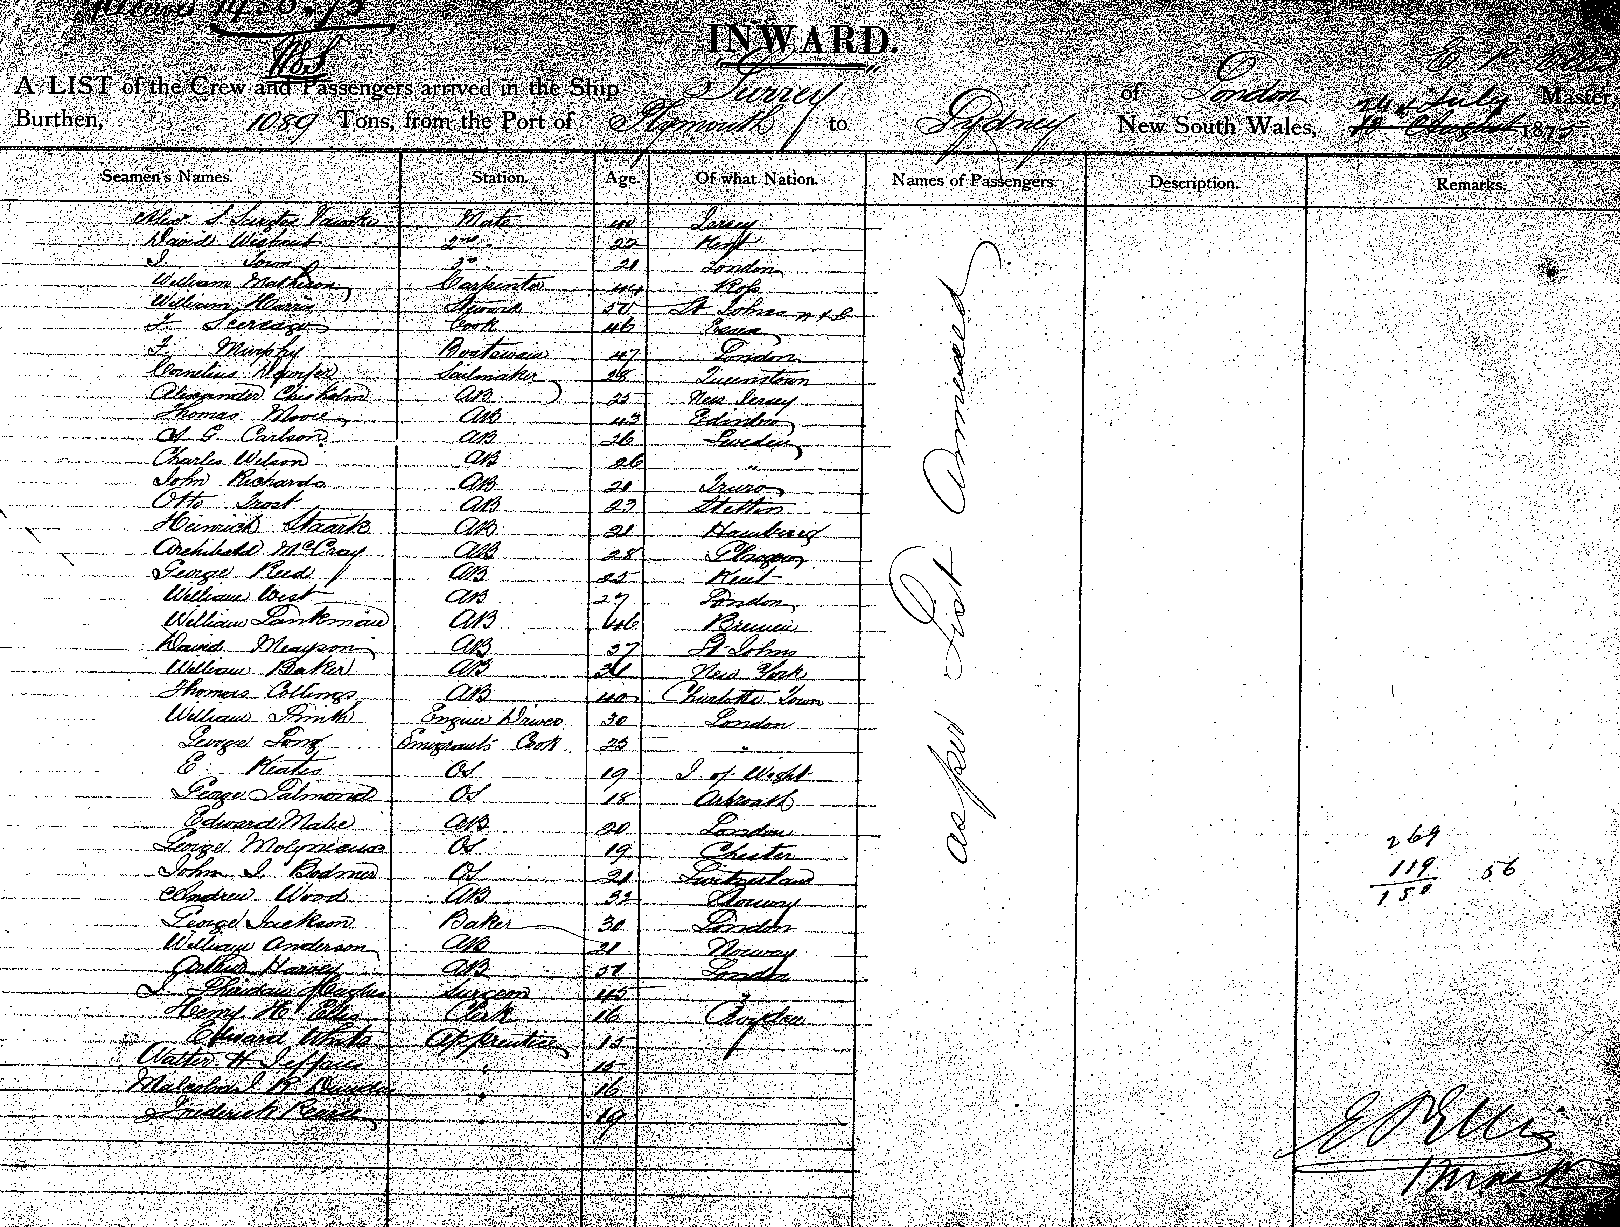 14.8.75
INWARD.
A LIST of the Crew and Passengers arrived in the Ship Surrey of London E P Ellis Master,
Burthen, 1089 Tons, from the Port of Plymouth to Sydney New South Wales, 1875
Seamen's Names. Station. Age. Of what Nation. Names of Passengers. Description. Remarks.
Mate 40 Jersey
David Wishart 2nd " 22 Kent
J. 3rd " 21 London
William Mathieson Carpenter 44 Ross
William Harris Steward 50 St Johns
Cook 46
F. Murphy Boatswain 47 London
Cornelius Sailmaker 28 Queenstown
Alexander Chisholm AB 25 New Jersey
Thomas Moore AB 43 Edinboro
G Carlson AB 26 Sweden
Charles Wilson AB 26 "
John Richards AB 21 Truro
Otto Trost AB 23 Stettin
Heinrich Staark AB 21 Hamburg
Archibald McCray AB 28 Glasgow
George Reed AB 25 Kent
William West AB 27 London
William AB 46 Bremen
David AB 37 St Johns
William Baker AB New York
Thomas Collings AB 40 Charlotte Town
William Smith Engine Driver 30 London
George Long Emigrants Cook 25 "
E Keates OS 19 I of Wight
George Salmond OS 18 Arbroath
Edward AB 20 London
George Molyneaux OS 19 Chester
John J. Bodmer OS 21 Switzerland
Andrew Wood AB 32 Norway
George Jackson Baker 30 London
William Anderson AB 21 Norway
Arthur Harvey AB London
Hughes Surgeon 45 "
Henry H Ellis Clerk 16 Croydon
Edward White Apprentice 15
Walter H Jefferies " 15
Malcolm " 16
Frederick " 19
as per List Annexed
269
119 56
150
E P Ellis
Master